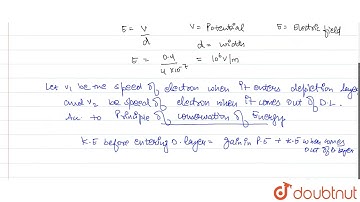 E = V/d   V = Potential   E = Electric field
d = width
E = 0.4 / 4×10⁻⁷ = 10⁶ V/m
Let v₁ be the speed of electron when it enters depletion layer
and v₂ be speed of electron when it comes out of D.L.
Acc to Principle of conservation of Energy
K.E before entering D. layer = gain in P.E + K.E when comes
out of D layer
doubtnut